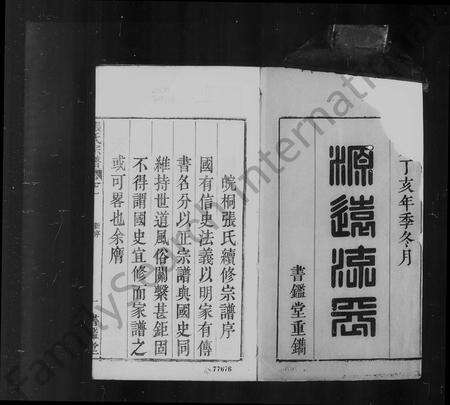 丁亥年季冬月
源遠流長
書鑑堂重鐫
皖桐張氏續修宗譜序
國有信史法義以明家有傳
書名分以正宗譜與國史同
維持世道風俗關繫甚鉅固
不得謂國史宜修而家譜之
或可畧也余膺
77676
FamilySearch International